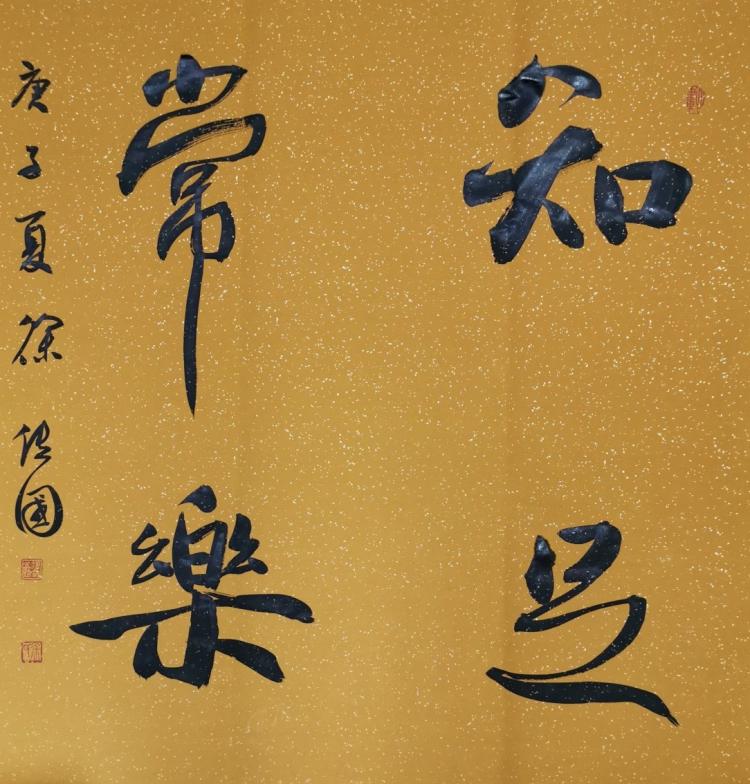 知足
常樂
庚子夏徐佐國